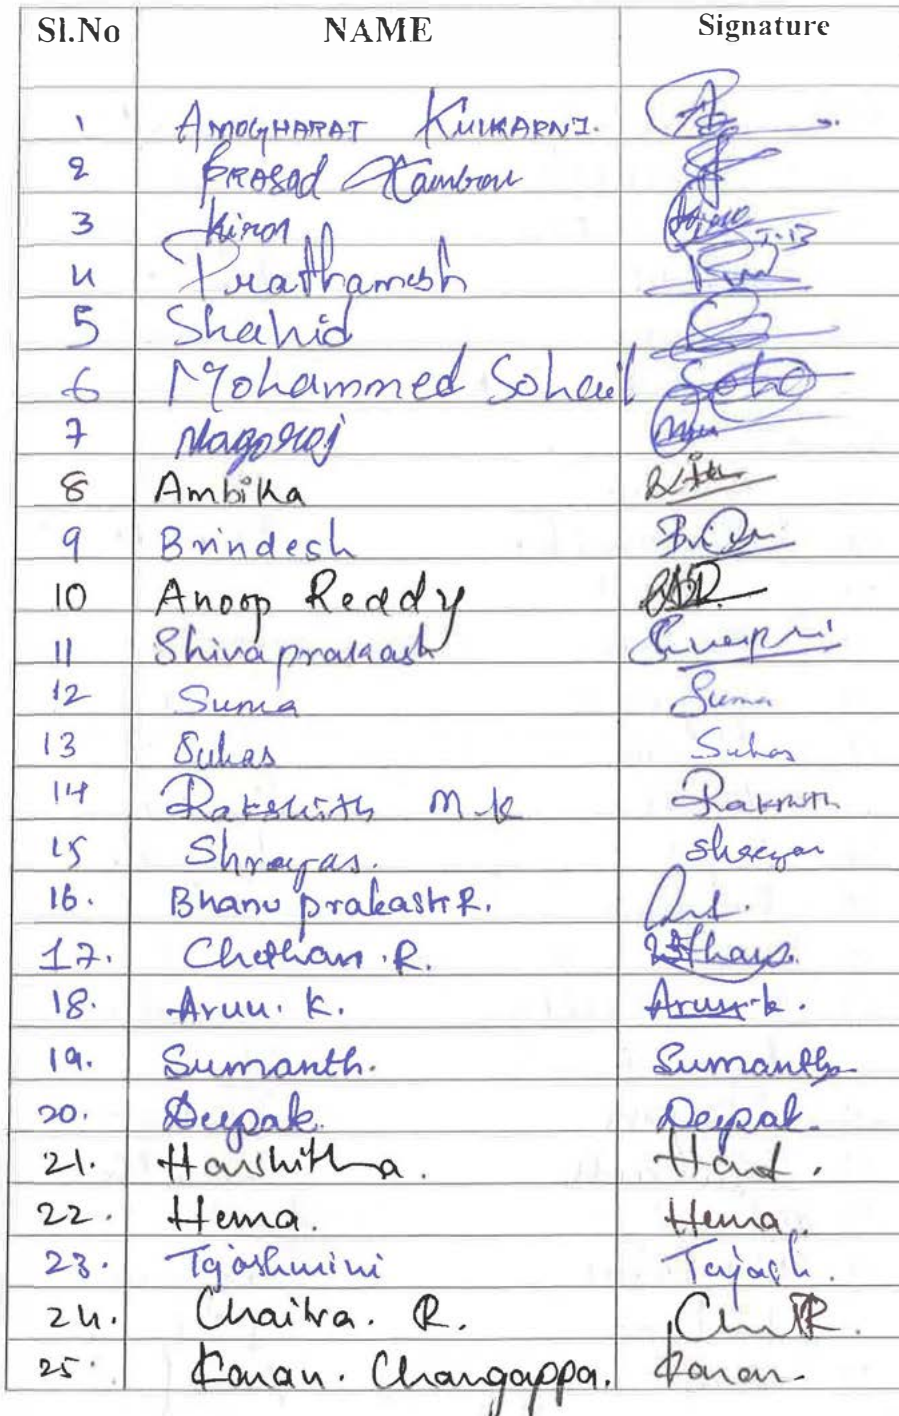 Sl.No NAME Signature
1 AMOGHARAT KULKARNI.
2 PRASAD
3 Kiran
4 Prathamesh
5 Shahid
6 Mohammed Sohail
7 Nagaraj
8 Ambika
9 Brindesh
10 Anoop Reddy
11 Shivaprakash
12 Suma Suma
13 Suhas Suhas
14 Rakshith M.K
15 Shreyas. Shreyas
16. Bhanu prakash R.
17. Chethan .R.
18. Arun. K. Arun.k.
19. Sumanth. Sumanth
20. Deepak. Deepak.
21. Harshitha.
22. Hema. Hema.
23. Tejashwini Tejash.
24. Chaitra. R.
25. Karan. Changappa. Karan.